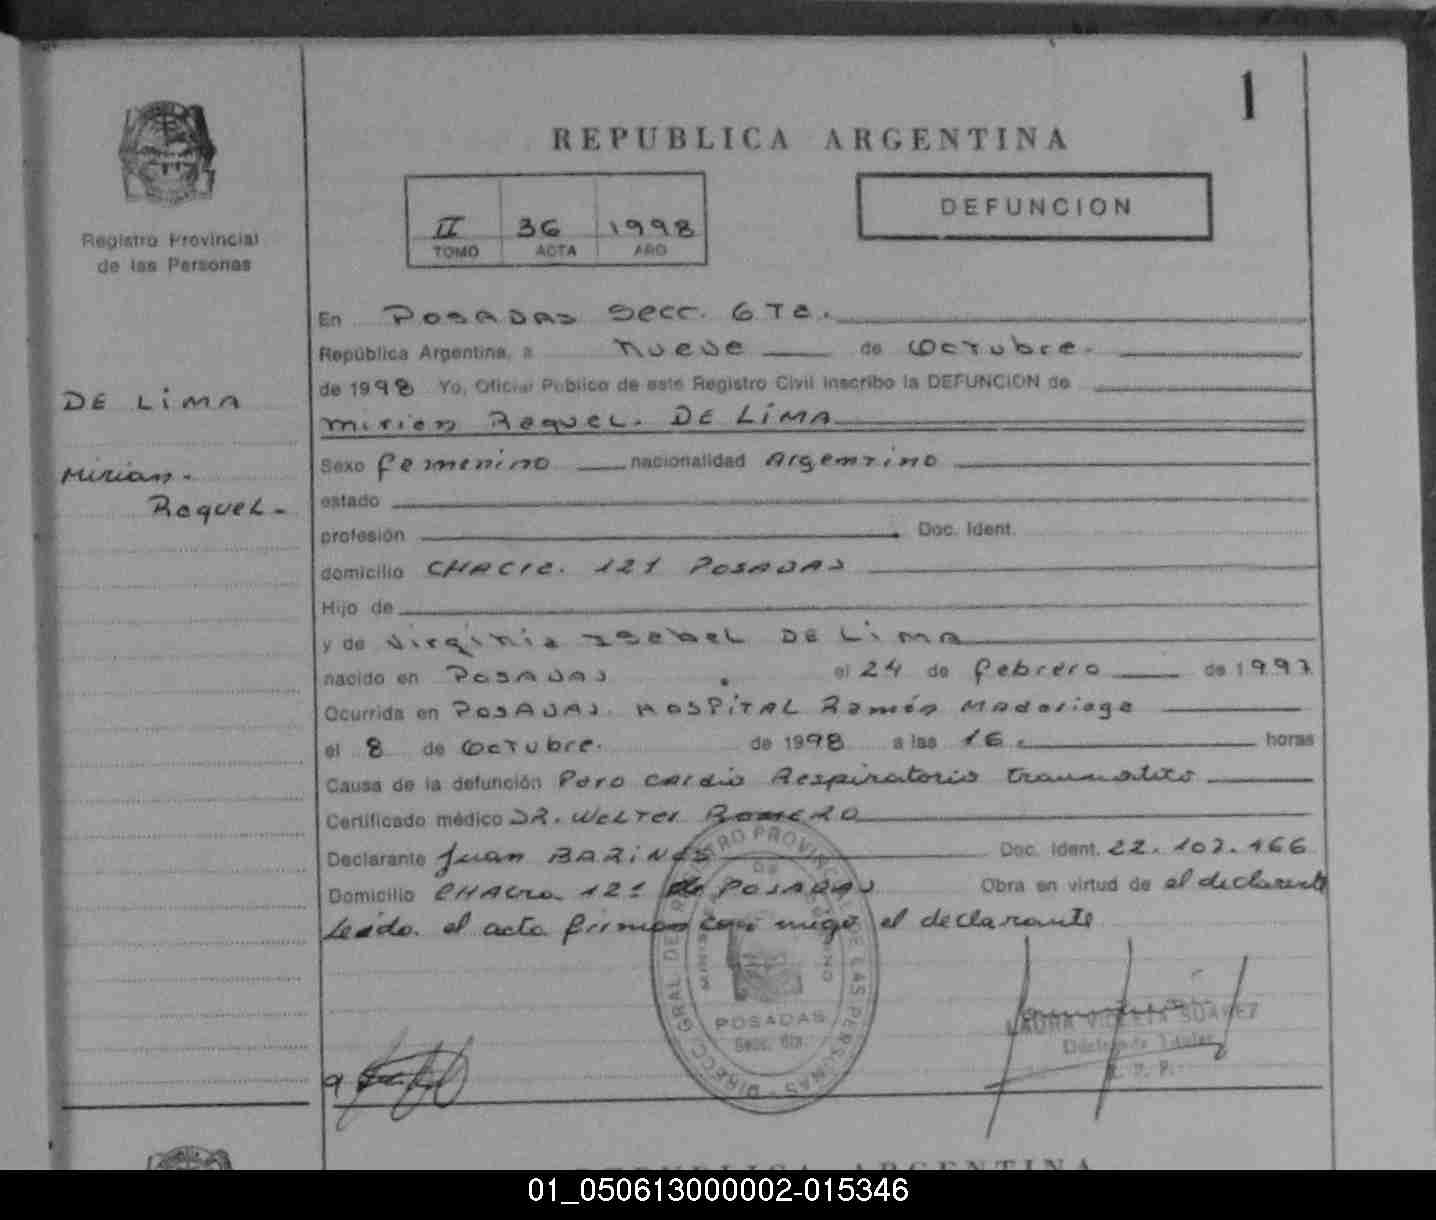 1
REPUBLICA ARGENTINA
II 36 1998
TOMO ACTA AÑO
DEFUNCION
Registro Provincial
de las Personas
DE LiMA
Mirian.
Raquel.
En POSADAS Secc. 6Ta.
República Argentina, a nueve de Octubre.
de 1998 Yo, Oficial Publico de este Registro Civil inscribo la DEFUNCION de
Mirian Raquel. DE LiMA
Sexo femenino nacionalidad Argentino
estado
profesión Doc. Ident.
domicilio CHACra. 121 POSADAS
Hijo de
y de Virginia Isabel DE Lima
nacido en POSADAS el 24 de febrero de 1997
Ocurrida en POSADAS. HOSPiTAL Ramón Madariaga
el 8 de Octubre. de 1998 a las 16. horas
Causa de la defunción Paro cardio Respiratorio traumatico
Certificado médico DR. Walter Romero
Declarante Juan BARiNAS Doc. Ident. 22.107.166
Domicilio CHAcra 121 de POSADAS Obra en virtud de el declarante
Leido. el acta firman con migo el declarante
DIRECC. GRAL. DE REGISTRO PROVINCIAL DE LAS PERSONAS
POSADAS
Secc. 6ta.
LAURA VIOLETA SUAREZ
Titular
R. P. P.
REPUBLICA ARGENTINA
01_050613000002-015346